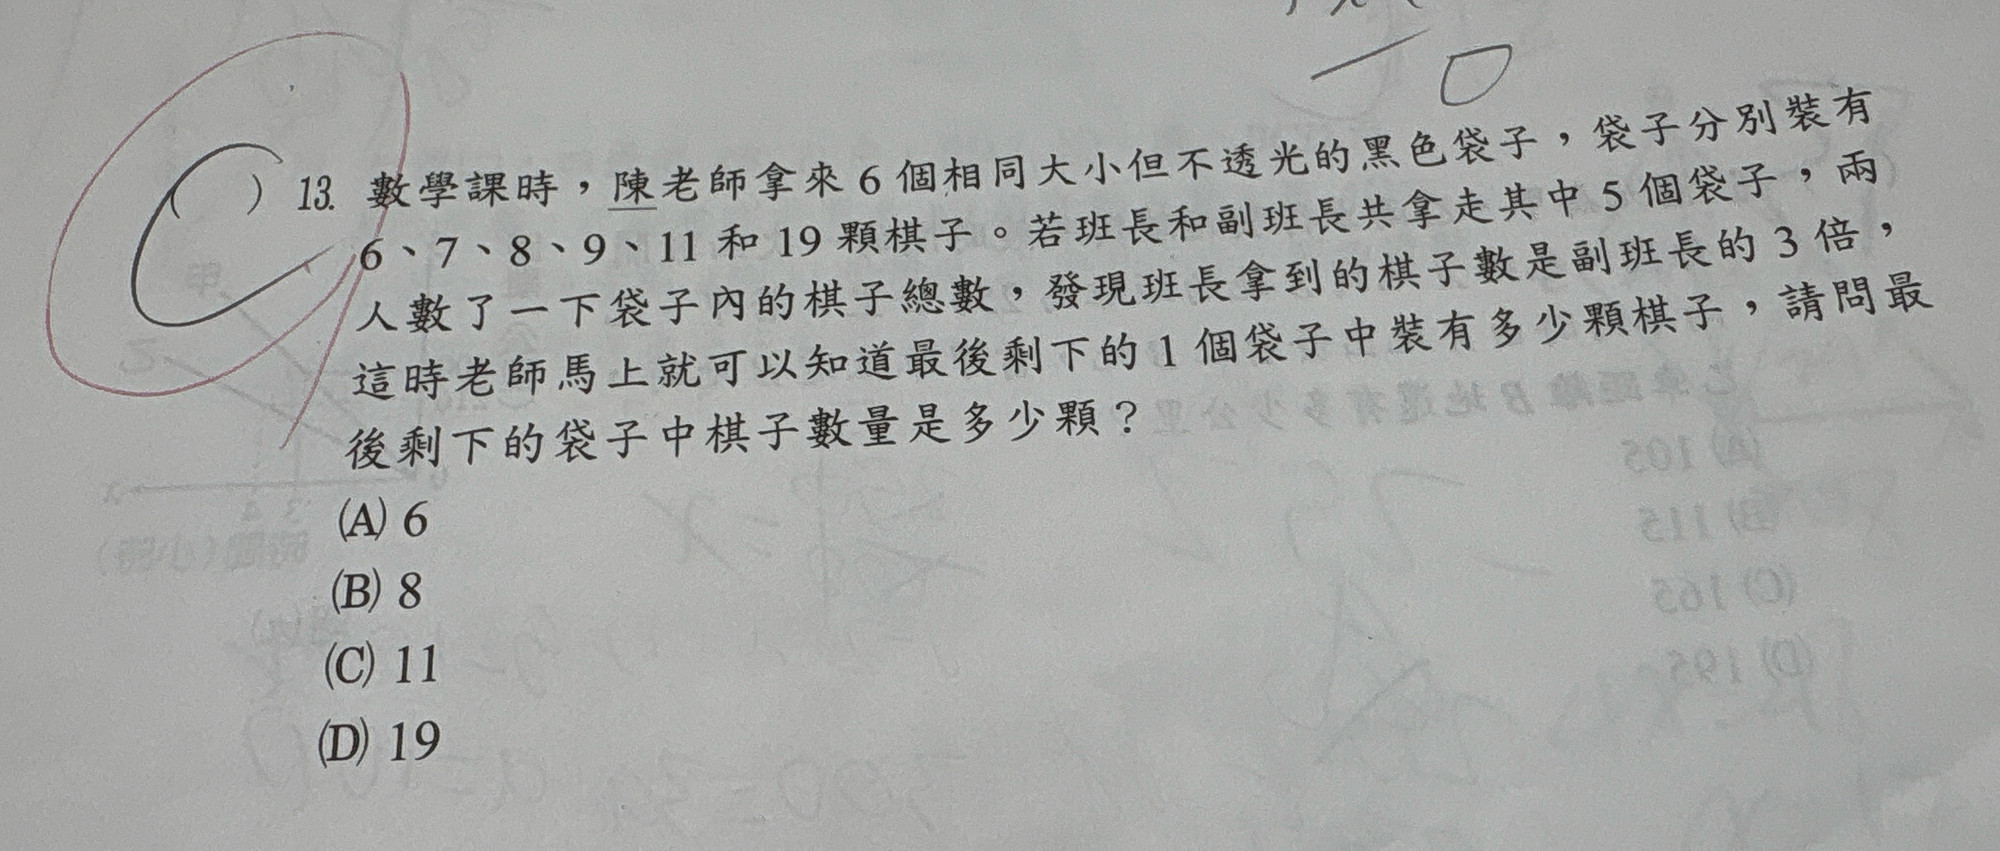 (C) 13. 數學課時，陳老師拿來 6 個相同大小但不透光的黑色袋子，袋子分別裝有
6、7、8、9、11 和 19 顆棋子。若班長和副班長共拿走其中 5 個袋子，兩
人數了一下袋子內的棋子總數，發現班長拿到的棋子數是副班長的 3 倍，
這時老師馬上就可以知道最後剩下的 1 個袋子中裝有多少顆棋子，請問最
後剩下的袋子中棋子數量是多少顆？
(A) 6
(B) 8
(C) 11
(D) 19